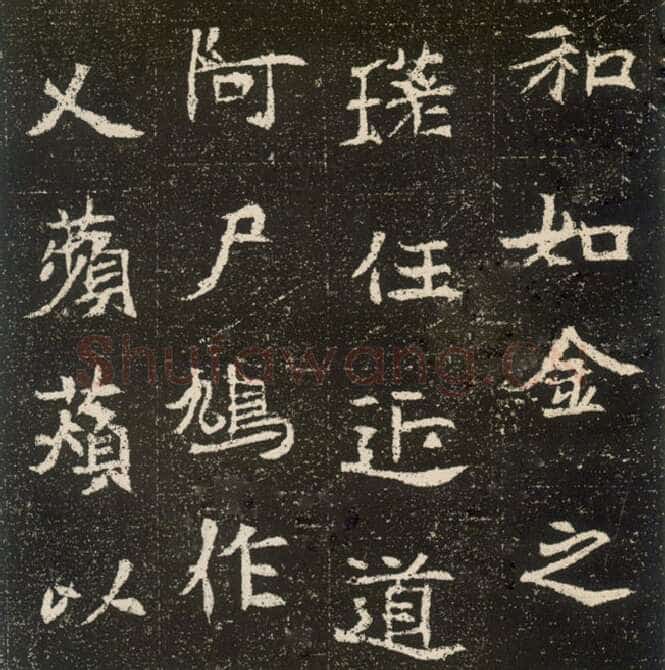 和如金之
任近道
阿尸鳩作
乂蘋以
Shufawang.cn